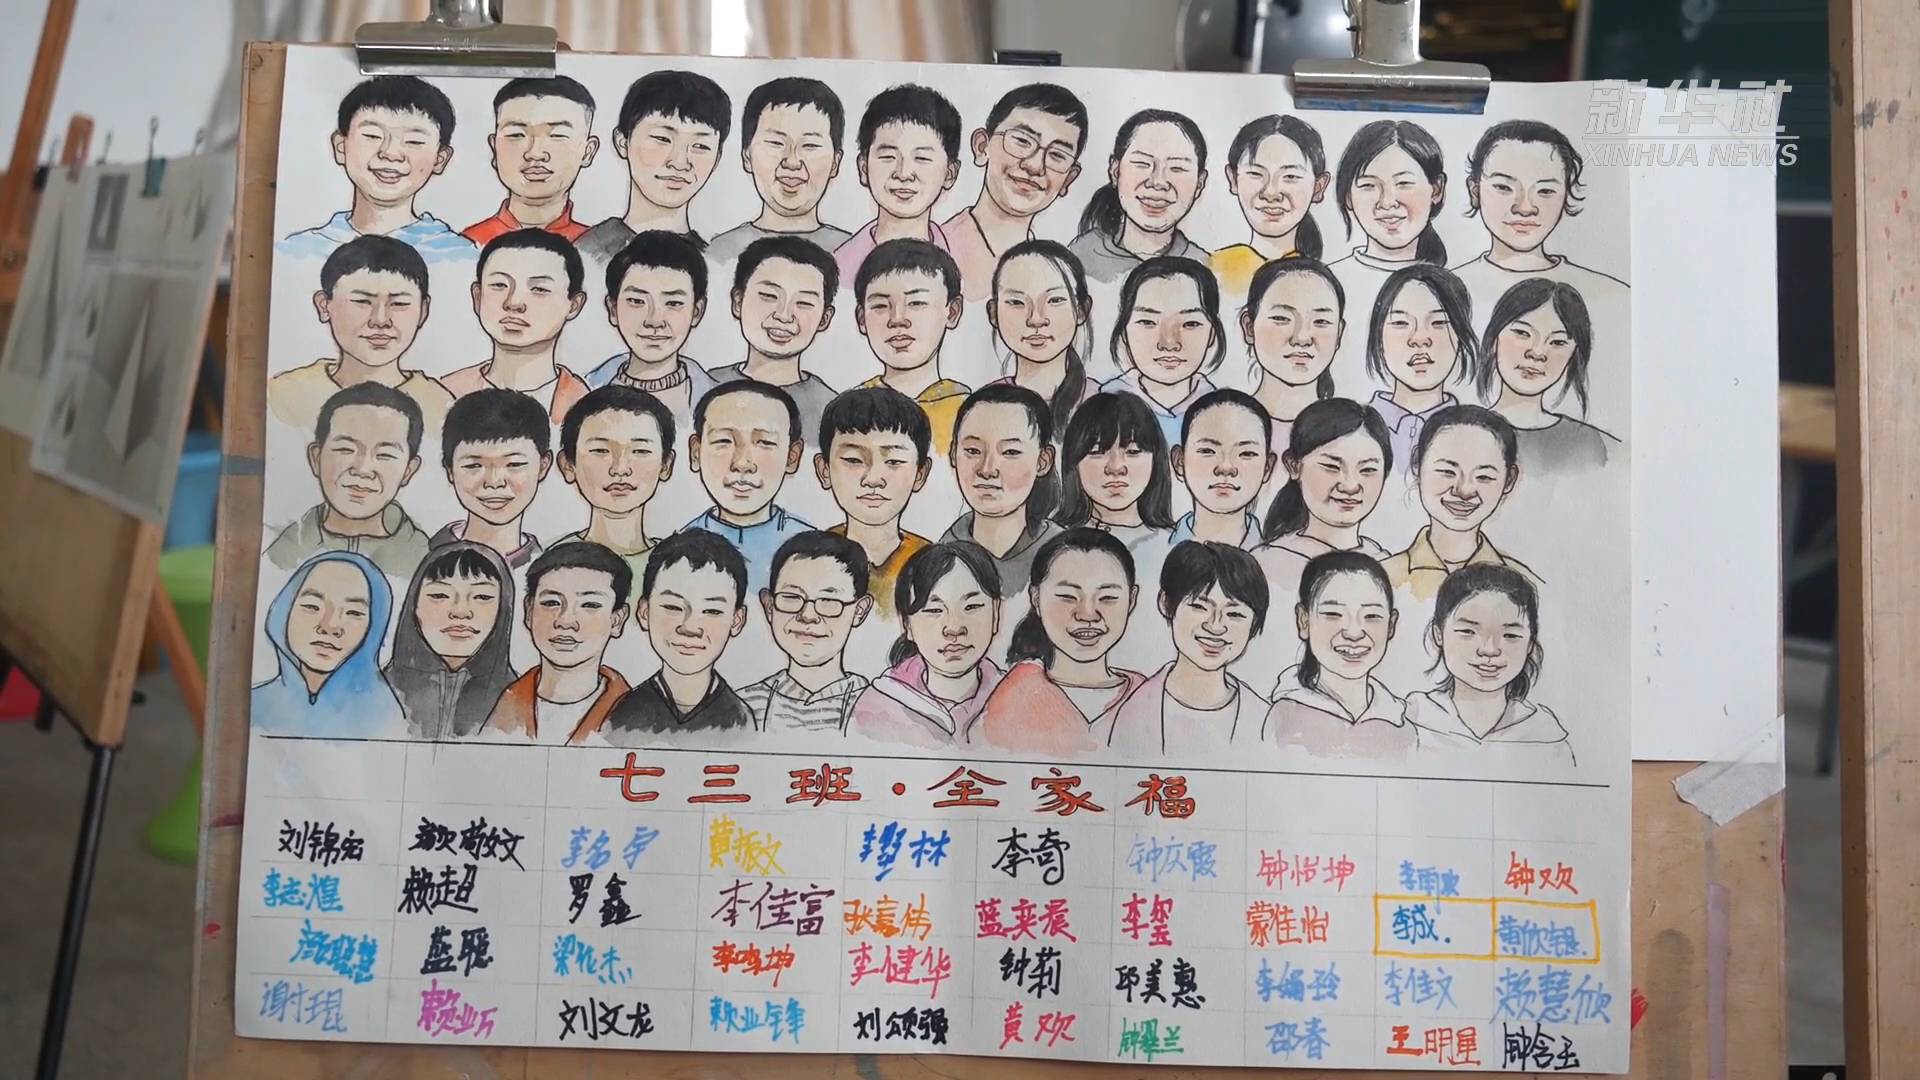 新华社
XINHUA NEWS
七三班·全家福
刘锦宏 李名宇 黄振文 李奇 钟庆霞 钟怡坤 李雨欢 钟欢
李志煌 赖超 罗鑫 李佳富 张嘉伟 蓝奕宸 李玺 蒙佳怡 李成.
蓝聪 李鸣坤 李健华 钟莉 邱美惠 李嫣玲 李佳文 赖慧欣
谢琨 赖业历 刘文龙 赖业锋 刘颂强 黄欢 钟翠兰 邵春 王明星 钟含玉